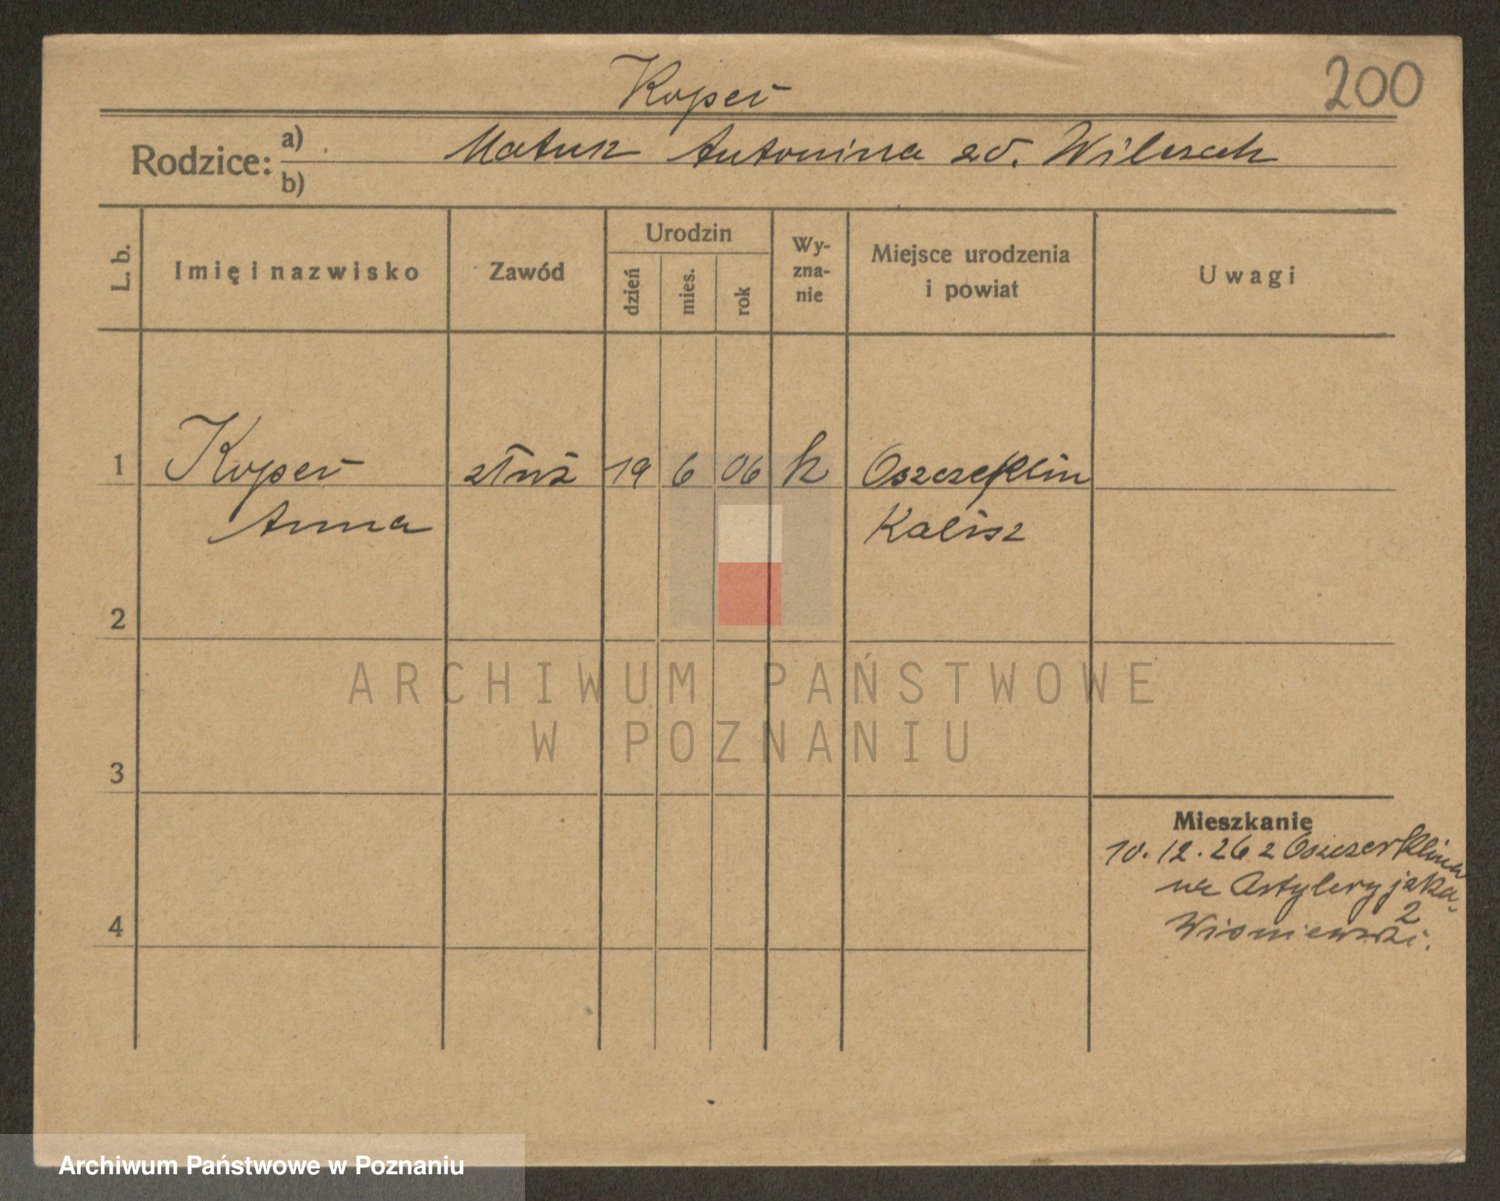 200
Kopeć
Rodzice: a) Matusz Antonina zd. Wilczak
b)
L. b. Imię i nazwisko Zawód Urodzin dzień mies. rok Wyzna-nie Miejsce urodzenia i powiat Uwagi
1 Kopeć służ 19 6 06 k Oszczeklin
Anna Kalisz
2
3
4
Mieszkanie
10. 12. 26 z Oszczerklina
na Artyleryjaka
2
Wisniewski.
ARCHIWUM PAŃSTWOWE
W POZNANIU
Archiwum Państwowe w Poznaniu